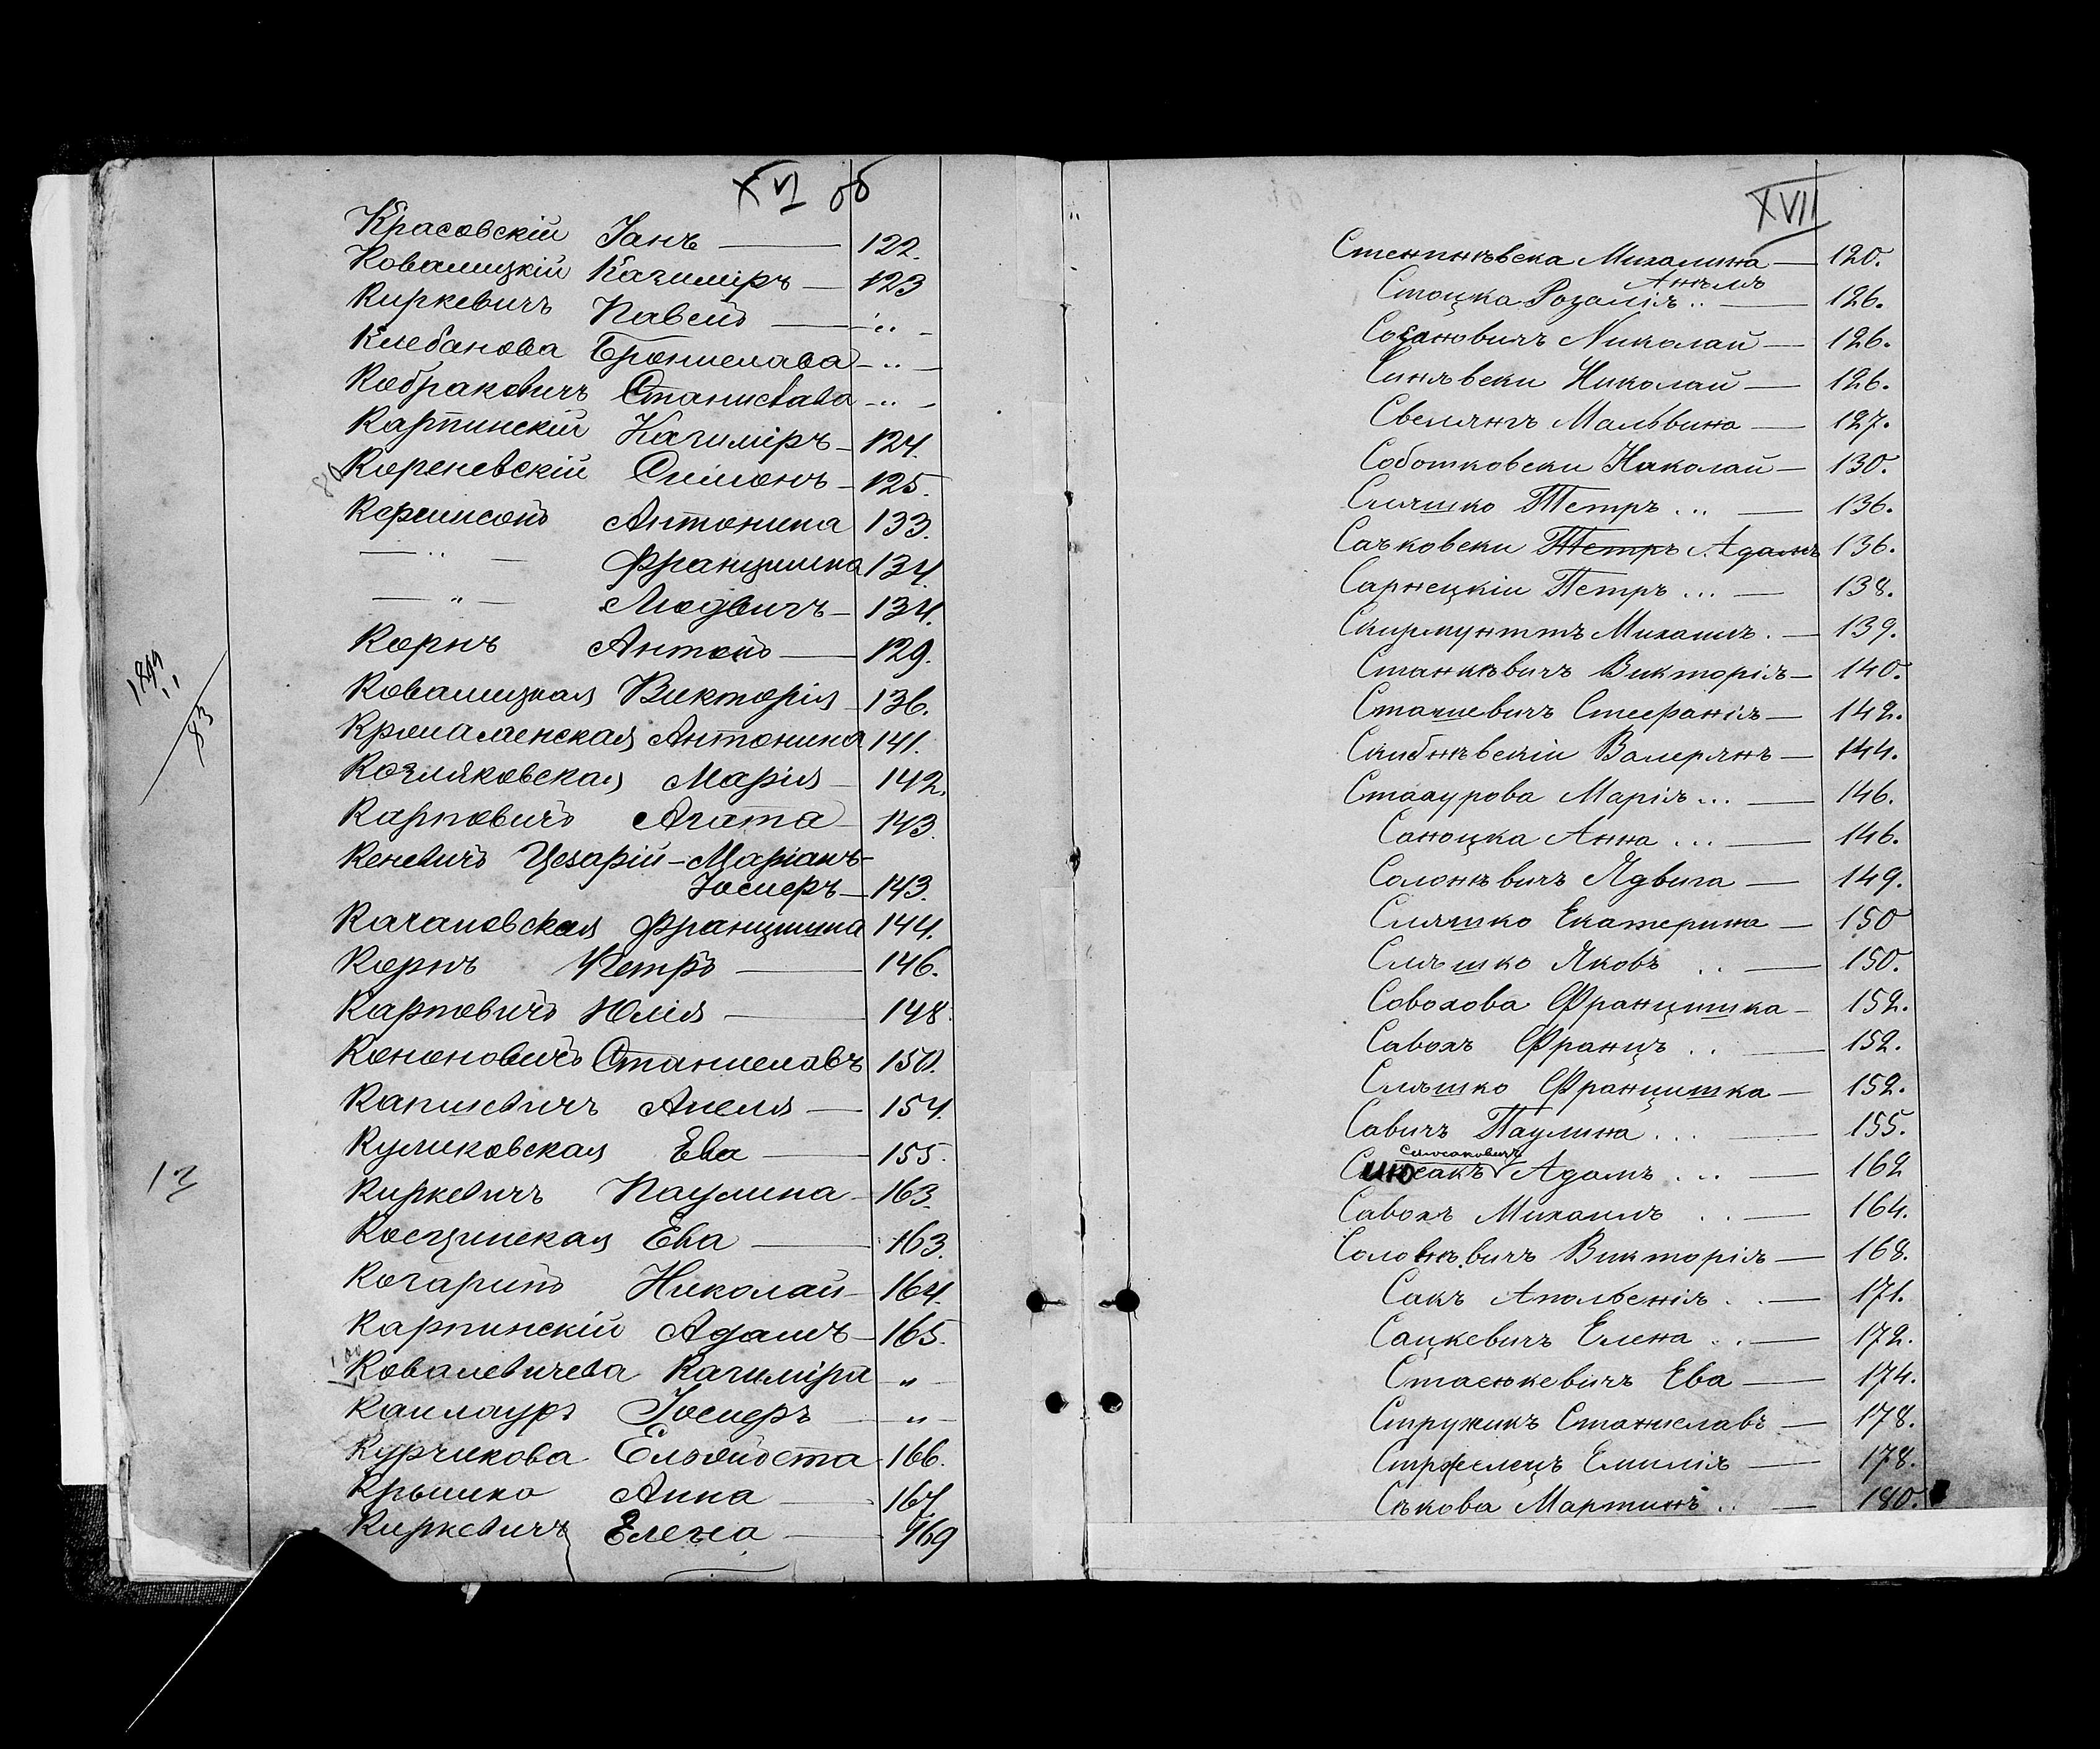 XVI об
Красовскій Іанъ — 122.
Ковалицкій Казиміръ — 123
Киркевичъ Павелъ — ..
Клебанова Брониелава — .. —
Кобраковичъ Станислава — .. —
Карпинскій Казиміръ — 124.
80
Кореневскій Симонъ — 125.
Антонина 133.
— .. — Францишка 134.
— " — Людвигъ — 134.
Корнъ Антонъ — 129.
Ковалицкая Викторія — 136.
Антонина 141.
Козляковская Марія — 142.
Карповичъ Агата — 143.
Кеневичъ Цезарій-Маріанъ-
Іосиеръ — 143.
Качановская Францишка 144.
Корнъ Петръ — 146.
Карповичъ Юлія — 148.
Кононовичъ Станиславъ 150.
Капшевичъ Анеля — 154.
Куликовская Ева — 155.
Киркевичъ Паулина — 163.
Косцинская Ева — 163.
Кочаринъ Николай — 164.
Карпинскій Адамъ — 165.
100
Ковалевичева Казиміра — " —
Каплауръ Іосиеръ — " —
Курчикова Ельжбета 166.
Крышко Анна — 167.
Киркевичъ Елена — 169
1899
83
13
XVII
Михалина — 120.
Анъля
Стоцка Розалія .. — 126.
Созановичъ Николай — 126.
Синявски Николай — 126.
Мальвина — 127.
Соботковски Николай — 130.
Слягшко Петръ ... — 136.
Сачковски Петръ Адамъ 136.
Сарнецкій Петръ ... — 138.
Скирмунттъ Михаилъ. — 139.
Станкѣвичъ Викторія — 140.
Сташевичъ Стефанія — 142.
Скибнѣвскій Валерянъ — 144.
Марія ... — 146.
Саноцка Анна ... — 146.
Солонѣвичъ Ядвига — 149.
Сляшко Екатерина — 150
Сляшко Яковъ .. — 150.
Савохова Францишка — 152.
Савохъ Францъ .. — 152.
Сляшко Францишка — 152.
Савичъ Паулина ... — 155.
Слюсаковичъ
Слюсакъ Адамъ ... — 162
Савохъ Михаилъ .. — 164.
Соловѣвичъ Викторія — 168.
Сакъ Апольенія .. — 171.
Сацкевичъ Елена .. — 172.
Стасюкевичъ Ева — 174.
Стружикъ Станиславъ — 178.
Стржелецъ Емилія — 178.
Сѣкова Мартинъ .. — 180.